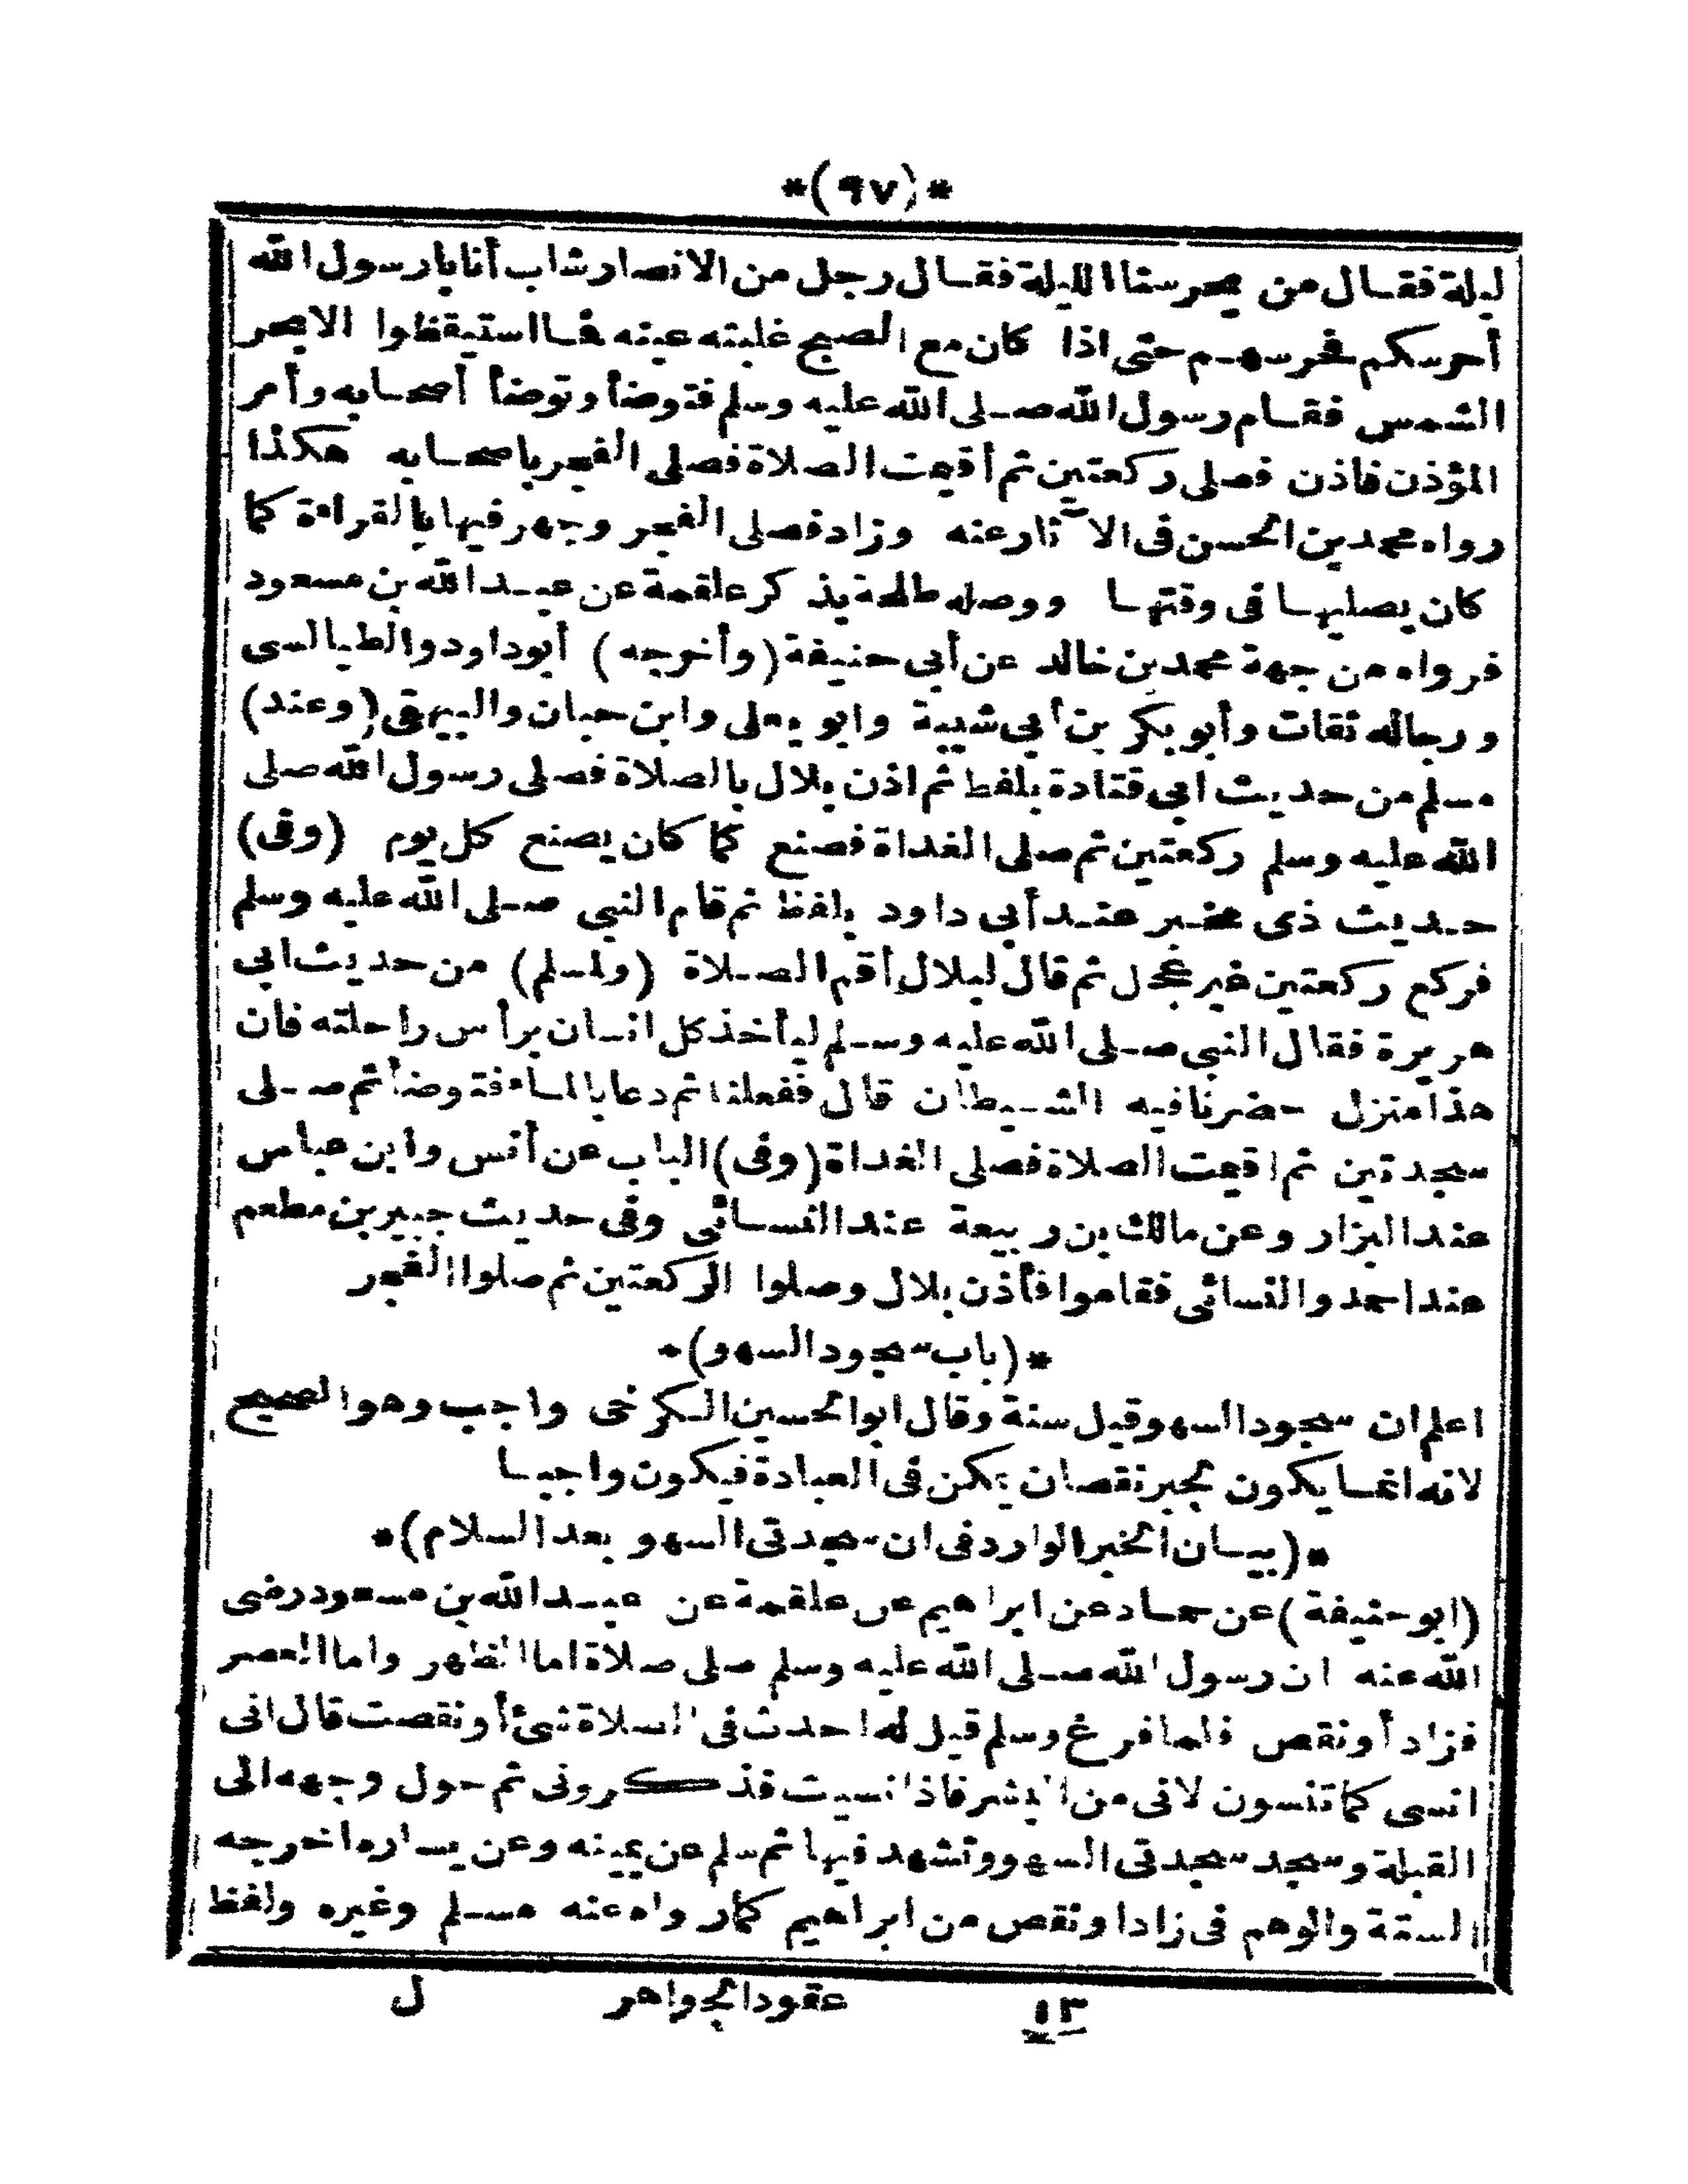 *(٩٧)*
ليلة فقال من يحرسنا الليلة فقال رجل من الانصار شاب أنا يا رسول الله
أحرسكم فحرسهم حتى اذا كان مع الصبح غلبته عينه فما استيقظوا الا بحر
الشمس فقام رسول الله صلى الله عليه وسلم فتوضأ وتوضأ أصحابه وأمر
المؤذن فأذن فصلى ركعتين ثم أقيمت الصلاة فصلى الفجر باصحابه هكذا
رواه محمد بن الحسن فى الآثار عنه وزاد فصلى الفجر وجهر فيها بالقراءة كما
كان يصليها فى وقتها ووصله طلحة بذكر علقمة عن عبد الله بن مسعود
فرواه من جهة محمد بن خالد عن أبى حنيفة (وأخرجه) أبو داود والطيالسى
ورجاله ثقات وأبو بكر بن أبى شيبة وابو يعلى وابن حبان والبيهقى (وعند)
مسلم من حديث ابى قتادة بلفظ ثم اذن بلال بالصلاة فصلى رسول الله صلى
الله عليه وسلم ركعتين ثم صلى الغداة فصنع كما كان يصنع كل يوم (وفى)
حديث ذى مخبر عند أبى داود بلفظ ثم قام النبى صلى الله عليه وسلم
فركع ركعتين غير عجل ثم قال لبلال أقم الصلاة (ولمسلم) من حديث ابى
هريرة فقال النبى صلى الله عليه وسلم ليأخذ كل انسان برأس راحلته فان
هذا منزل حضرنا فيه الشيطان قال ففعلنا ثم دعا بالماء فتوضأ ثم صلى
سجدتين ثم اقيمت الصلاة فصلى الغداة (وفى) الباب عن أنس وابن عباس
عند البزار وعن مالك بن ربيعة عند النسائى وفى حديث جبير بن مطعم
عند احمد والنسائى فقاموا فأذن بلال وصلوا الركعتين ثم صلوا الفجر
*(باب سجود السهو)*
اعلم ان سجود السهو قيل سنة وقال ابو الحسين الكرخى واجب وهو الصحيح
لانه انما يكون لجبر نقصان يمكن فى العبادة فيكون واجبا
*(بيان الخبر الوارد فى ان سجدتى السهو بعد السلام)*
(ابو حنيفة) عن حماد عن ابراهيم عن علقمة عن عبد الله بن مسعود رضى
الله عنه ان رسول الله صلى الله عليه وسلم صلى صلاة اما الظهر واما العصر
فزاد أو نقص فلما فرغ وسلم قيل له احدث فى الصلاة شئ أو نقصت قال انى
انسى كما تنسون لانى من البشر فاذا نسيت فذكرونى ثم حول وجهه الى
القبلة وسجد سجدتى السهو وتشهد فيها ثم سلم عن يمينه وعن يساره اخرجه
الستة والوهم فى زاد او نقص من ابراهيم كما رواه عنه مسلم وغيره ولفظ
١٣ عقود الجواهر ل